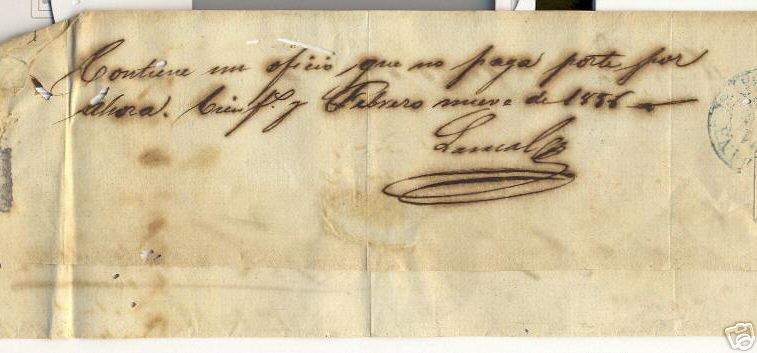 Contiene un oficio que no paga porte por
ahora. Cienf.s y Febrero nueve de 1856